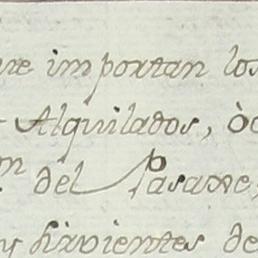 importan los
Alquilados, ò
del Pasaxe,
y sirvientes de